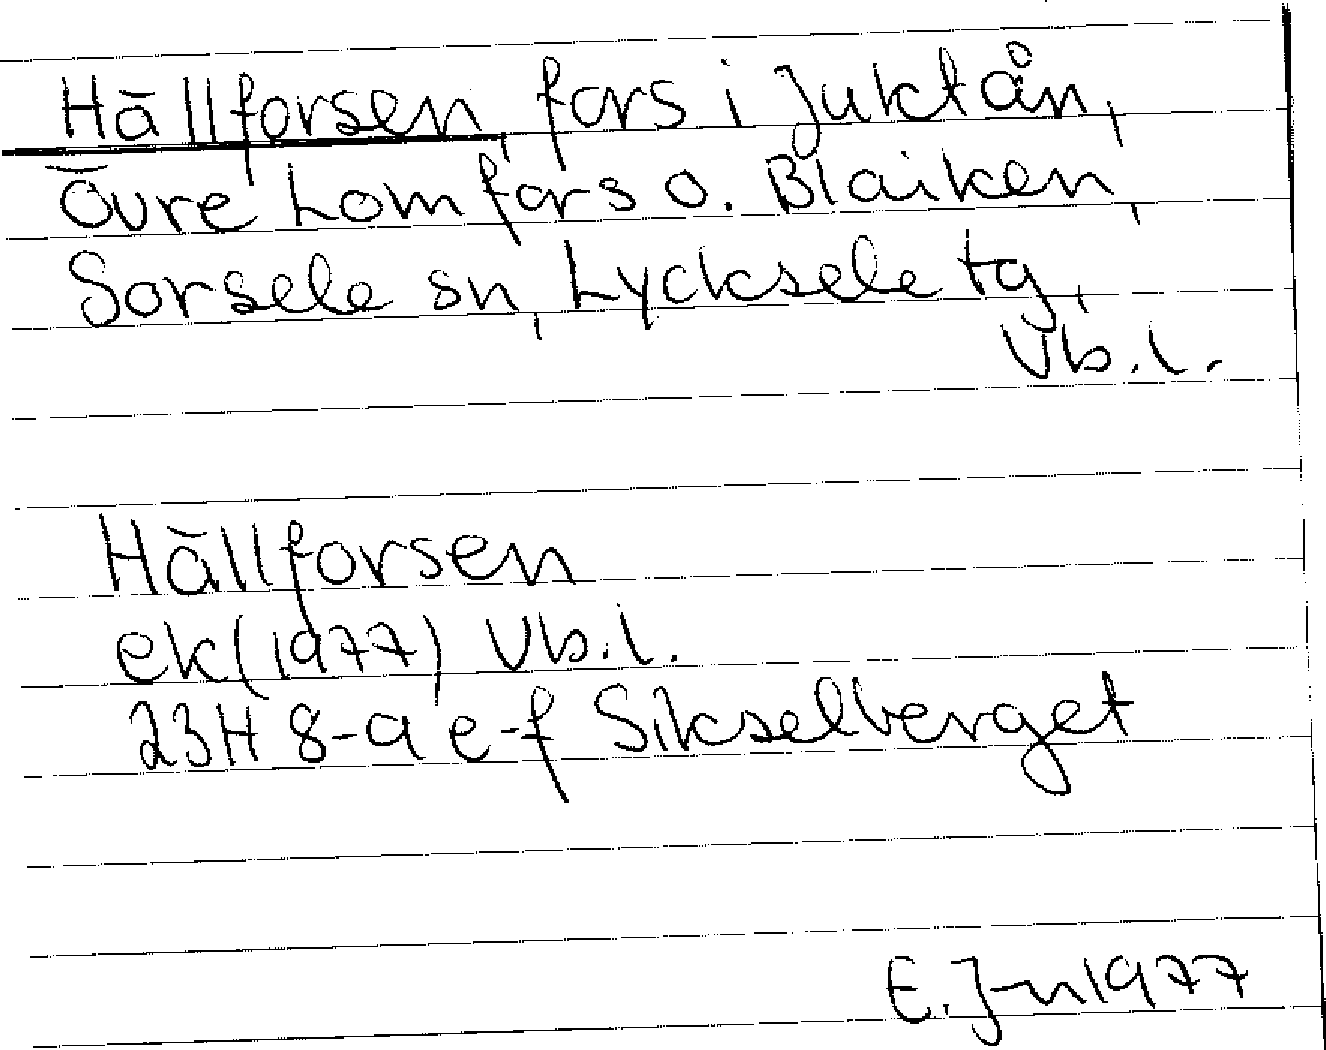 Hällforsen, fors i Juktån,
Övre Lomfors o. Blaiken,
Sorsele sn, Lycksele tg,
Vb.l.
Hällforsen
ek(1977) Vb.l.
23H 8-9 e-f Sikselberget
E.J-n 1977